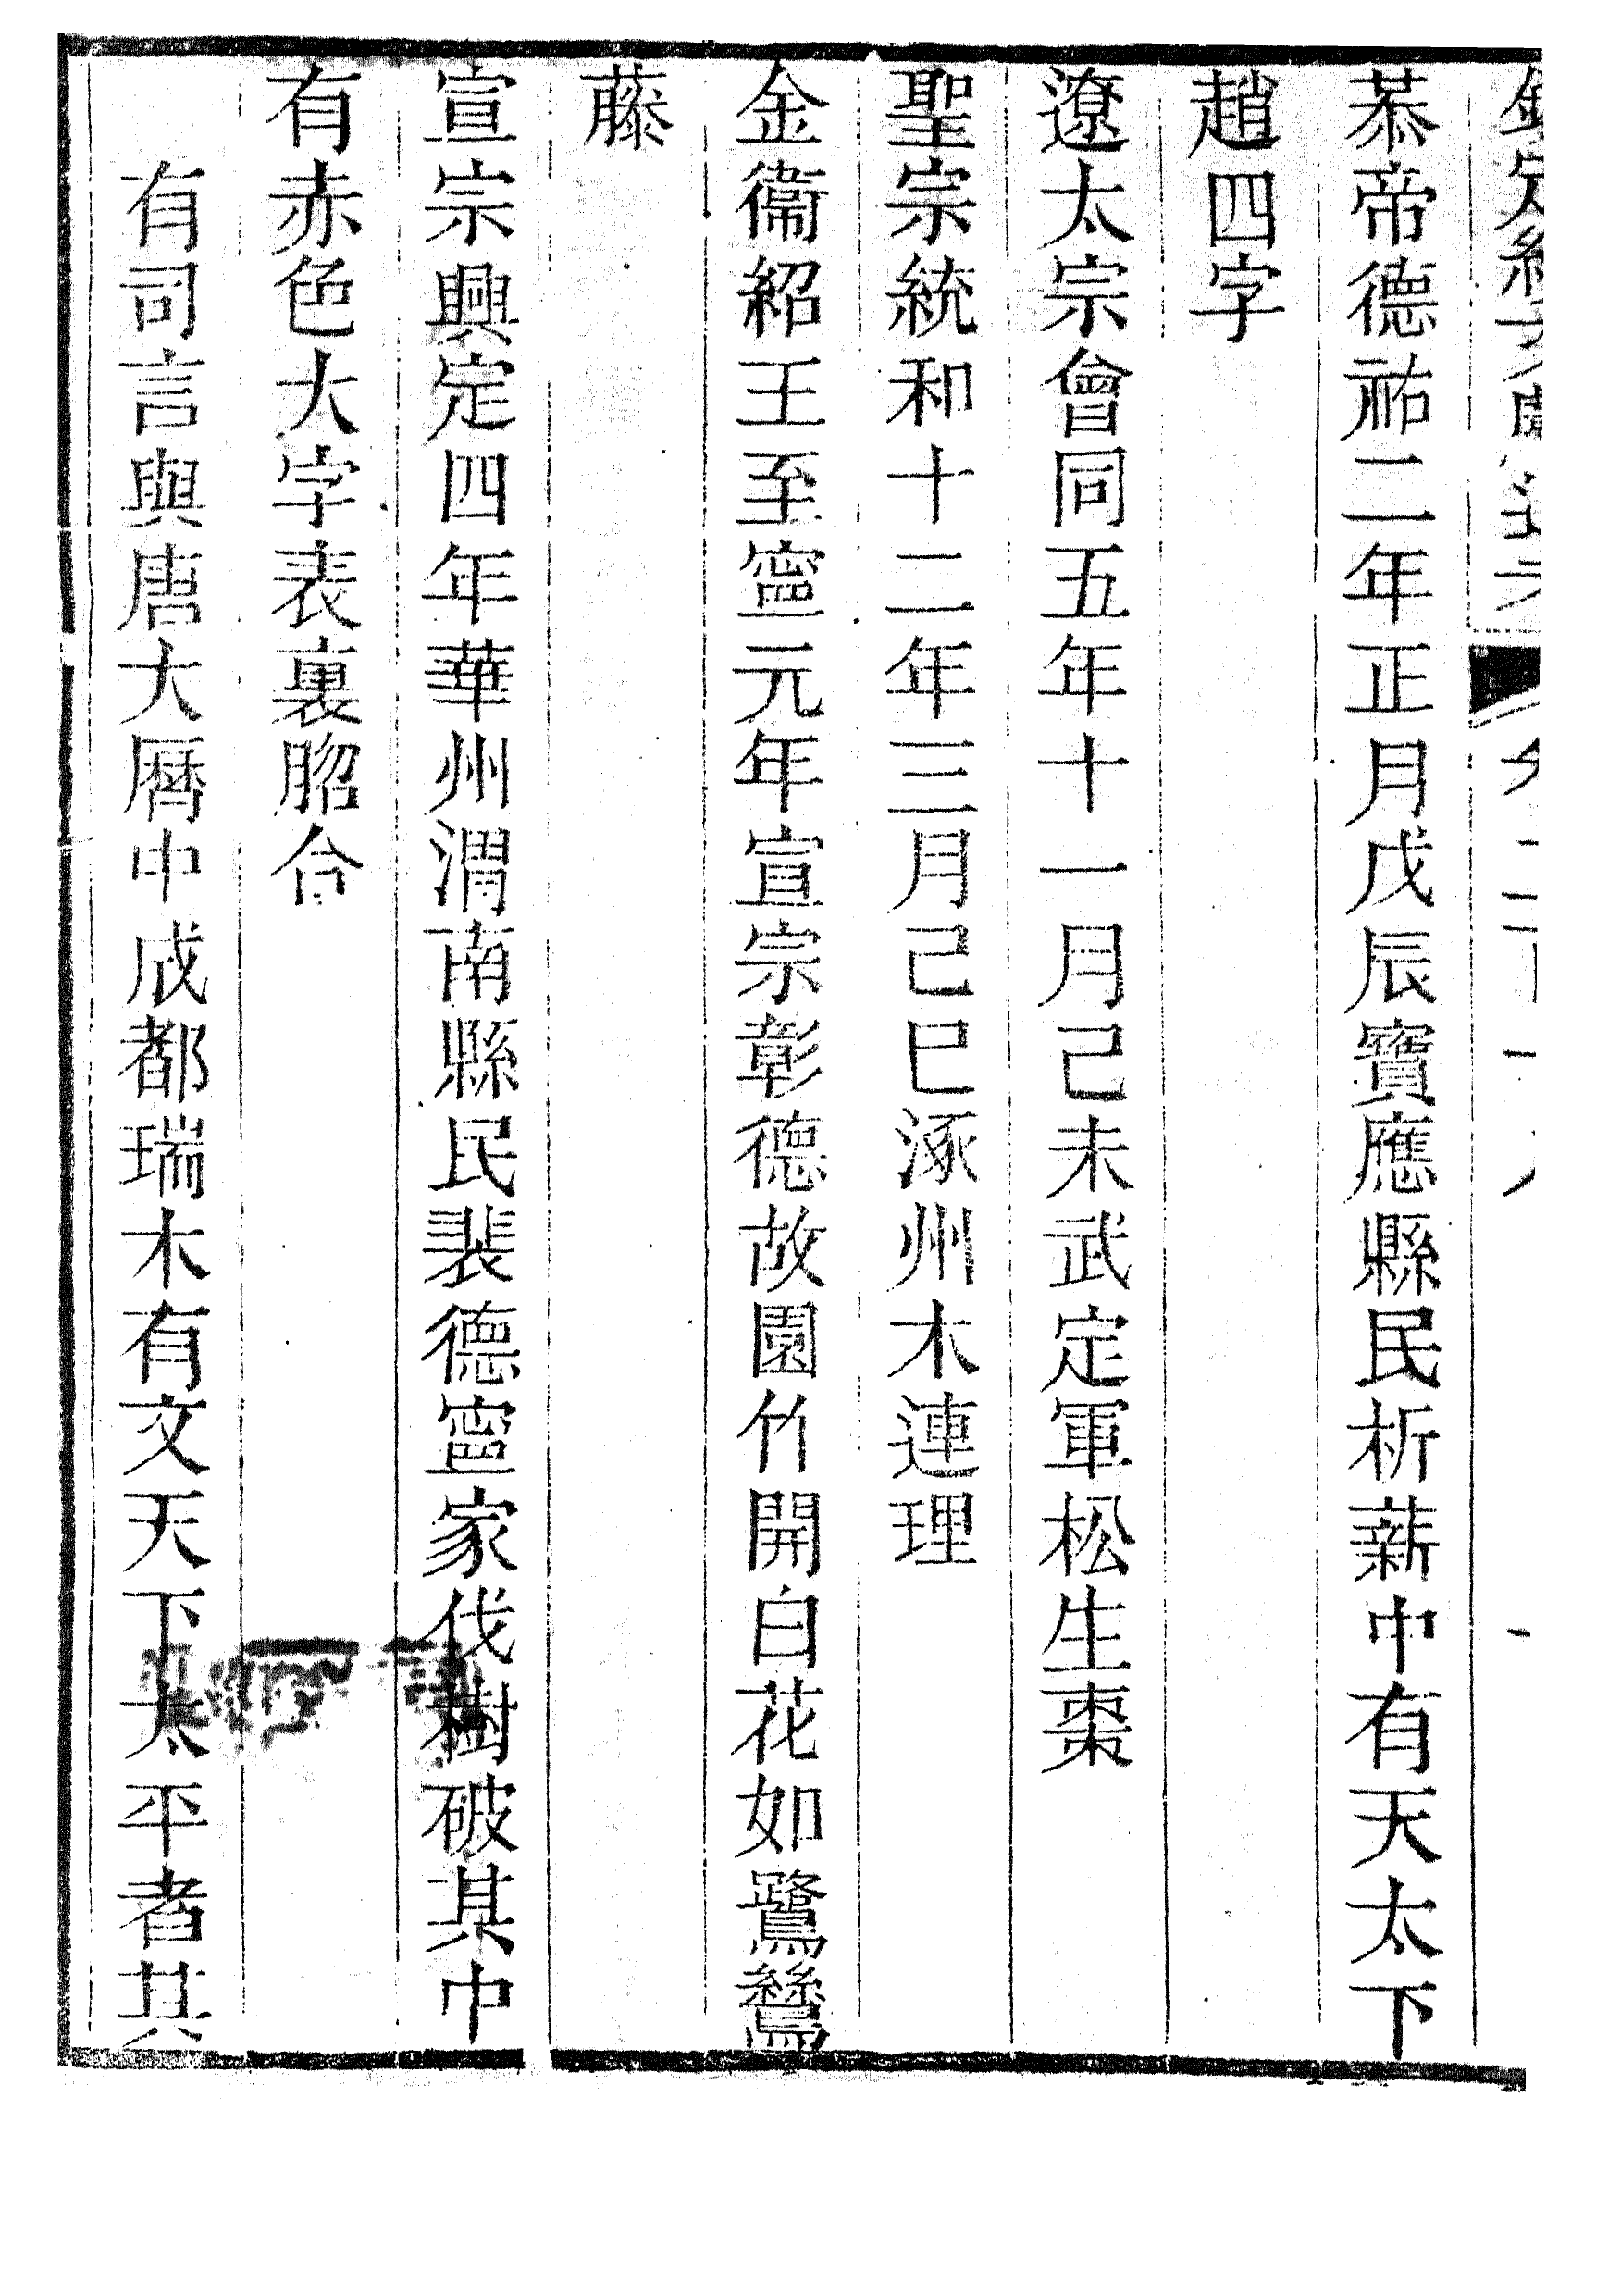 恭帝德祐二年正月戊辰寶應縣民析薪中有天太下
趙四字
遼太宗會同五年十一月己未武定軍松生棗
聖宗統和十二年三月己巳涿州木連理
金衞紹王至寧元年宣宗彰德故園竹開白花如鷺鷥
藤
宣宗興定四年華州渭南縣民裴德寧家伐樹破其中
有赤色大字表裏脗合
有司言與唐大曆中成都瑞木有文天下太平者其